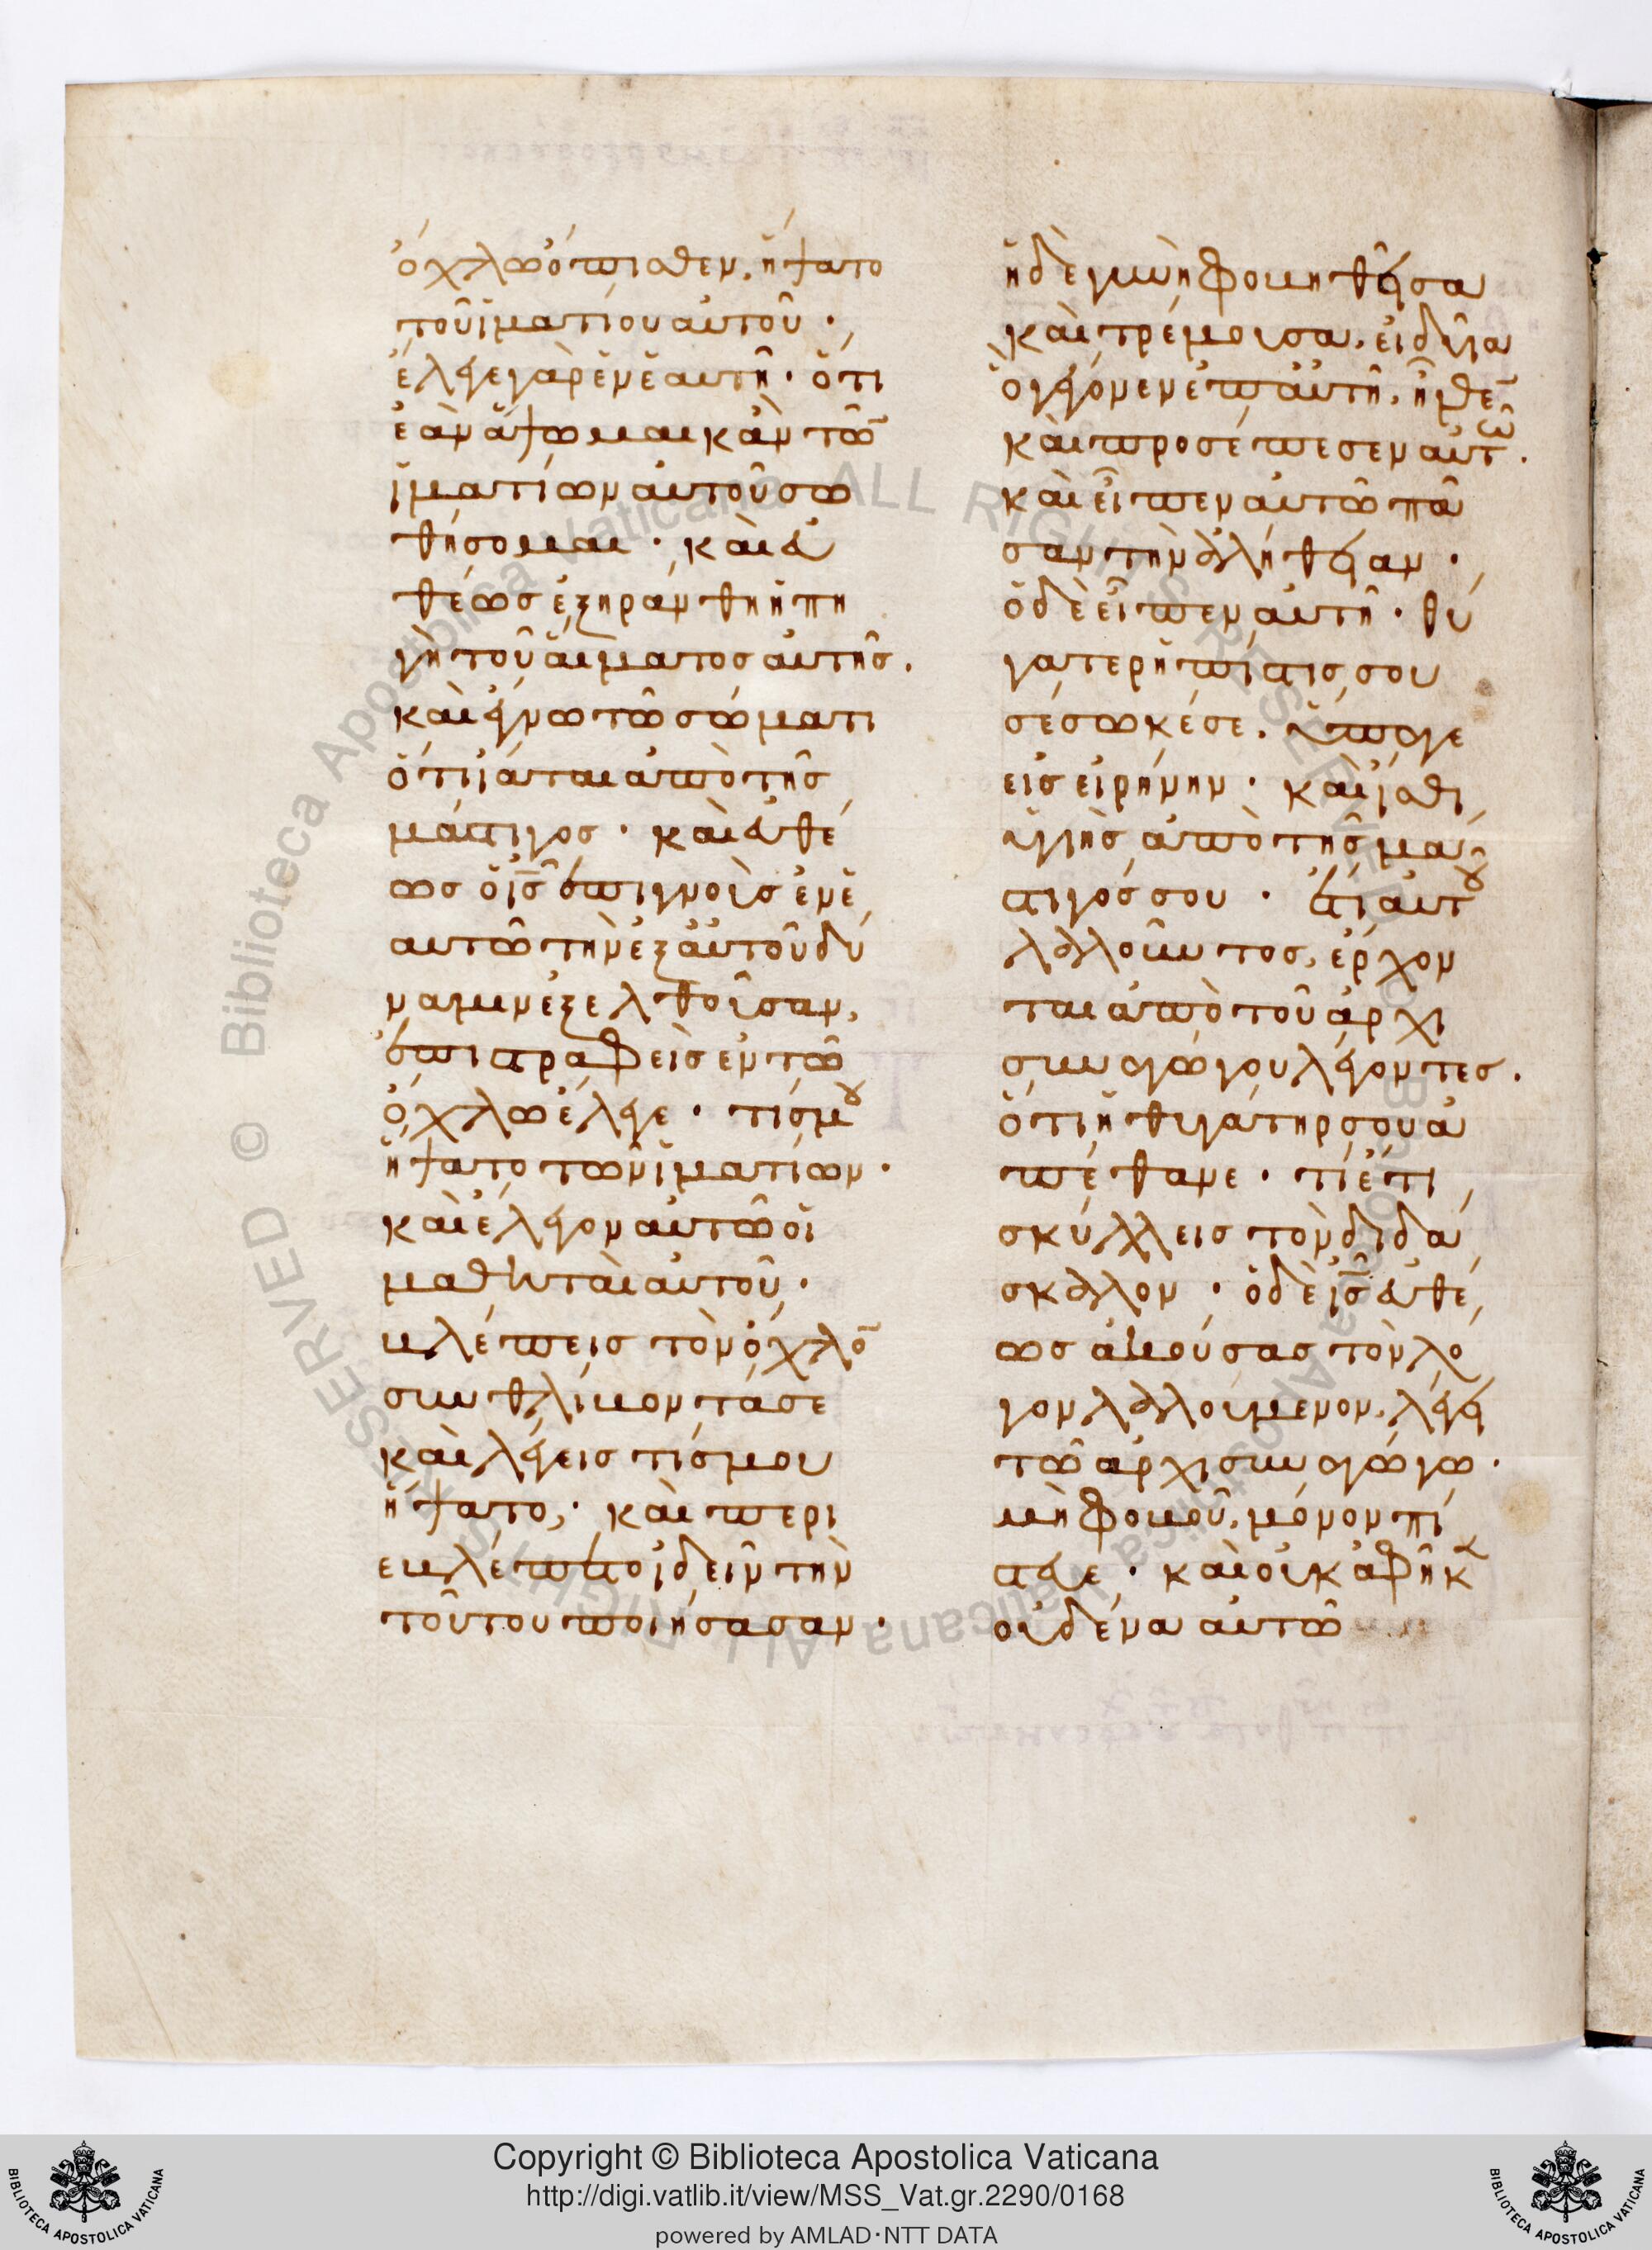 ὄχλω ὄπισθεν, ἥψατο
τοῦ ἱματίου αὐτοῦ·
ἔλεγε γὰρ ἐν ἑαυτῆ· ὅτι
ἐὰν ἅψωμαι κἂν τῶ̅
ἱματίων αὐτοῦ σω
θήσομαι· καὶ εὐ
θέως ἐξηράνθη ἡ πη
γὴ τοῦ αἵματος αὐτῆς.
καὶ ἔγνω τῶ σώματι
ὅτι ἴαται ἀπὸ τῆς
μάστιγος· καὶ εὐθέ
ως ὁ ι̅ς̅ ἐπιγνοὺς ἐν ἑ
αυτῶ τὴν ἐξ αὐτοῦ δύ
ναμιν ἐξελθοῦσαν,
ἐπιστραφεὶς ἐν τῶ
ὄχλω ἔλεγε· τίς μου
ἥψατο τῶν ἱματίων·
καὶ ἔλεγον αὐτῶ οἱ
μαθηταὶ αὐτοῦ·
βλέπεις τὸν ὄχλο̅
συνθλίβοντά σε
καὶ λέγεις τίς μου
ἥψατο,· καὶ περι
εβλέπετο ἰδεῖν τὴν
τοῦτου ποιήσασαν·
ἡ δὲ γυνὴ φοβηθεῖσα
καὶ τρέμουσα, εἰδυῖα
ὃ γέγονεν ἐπ αὐτῆ, ἦλθε̅
καὶ προσέπεσεν αὐτῶ.
καὶ εἶπεν αὐτῶ πᾶ
σαν τὴν ἀλήθειαν·
ὁ δὲ εἶπεν αὐτῆ· θύ
γατερ ἡ πίστις σου
σέσωκέ σε. ὕπαγε
εἰς εἰρήνην· καὶ ἴσθι
ὑγιὴς ἀπὸ τῆς μά
στιγός σου· ἔτι αὐτου
λαλοῦντος, ἔρχον
ται ἀπὸ τοῦ ἀρχι
συναγώγου λέγοντες.
ὅτι ἡ θυγάτηρ σου ἀ
πέθανε· τί ἔτι
σκύλλεις τὸν διδά
σκαλον· ὁ δὲ ι̅ς̅ εὐθέ
ως ἀκούσας τὸν λό
γον λαλούμενον, λέγει
τῶ ἀρχισυναγώγω·
μὴ φοβοῦ, μόνον πί
στευε· καὶ οὐκ ἀφῆκε
οὐδένα αὐτῶ
Copyright © Biblioteca Apostolica Vaticana
http://digi.vatlib.it/view/MSS_Vat.gr.2290/0168
powered by AMLAD·NTT DATA